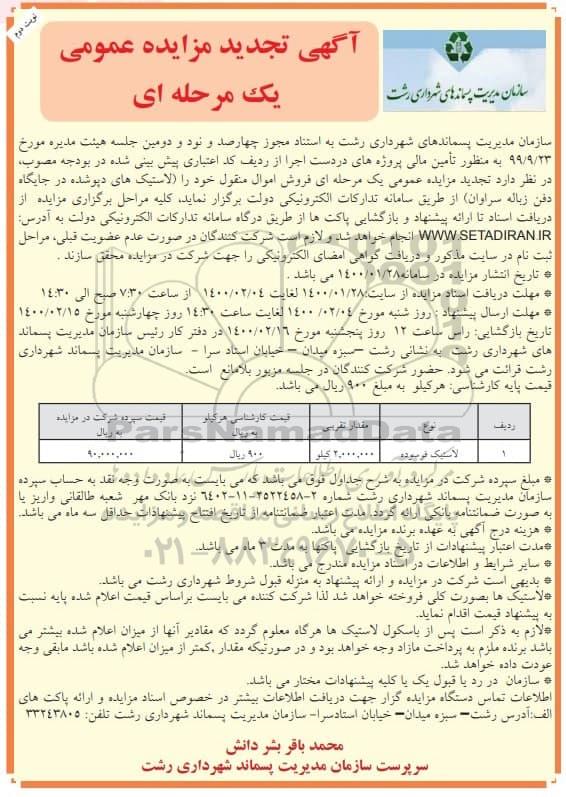 نوبت دوم
آگهی تجدید مزایده عمومی
یک مرحله ای
سازمان مدیریت پسماندهای شهرداری رشت
سازمان مدیریت پسماندهای شهرداری رشت به استناد مجوز چهارصد و نود و دومین جلسه هیئت مدیره مورخ
۹۹/۹/۲۳ به منظور تأمین مالی پروژه های دردست اجرا از ردیف کد اعتباری پیش بینی شده در بودجه مصوب،
در نظر دارد تجدید مزایده عمومی یک مرحله ای فروش اموال منقول خود را (لاستیک های دپوشده در جایگاه
دفن زباله سراوان) از طریق سامانه تدارکات الکترونیکی دولت برگزار نماید، کلیه مراحل برگزاری مزایده از
دریافت اسناد تا ارائه پیشنهاد و بازگشایی پاکت ها از طریق درگاه سامانه تدارکات الکترونیکی دولت به آدرس:
WWW.SETADIRAN.IR انجام خواهد شد و لازم است شرکت کنندگان در صورت عدم عضویت قبلی، مراحل
ثبت نام در سایت مذکور و دریافت گواهی امضای الکترونیکی را جهت شرکت در مزایده محقق سازند .
* تاریخ انتشار مزایده در سامانه۱۴۰۰/۰۱/۲۸ می باشد .
* مهلت دریافت اسناد مزایده از سایت:۱۴۰۰/۰۱/۲۸ لغایت ۱۴۰۰/۰۲/۰۴ از ساعت ۷:۳۰ صبح الی ۱۴:۳۰
* مهلت ارسال پیشنهاد : روز شنبه مورخ ۱۴۰۰/۰۲/۰۴ لغایت ساعت ۱۴:۳۰ روز چهارشنبه مورخ ۱۴۰۰/۰۲/۱۵
تاریخ بازگشایی: راس ساعت ۱۲ روز پنجشنبه مورخ ۱۴۰۰/۰۲/۱۶ در دفتر کار رئیس سازمان مدیریت پسماند
های شهرداری رشت به نشانی رشت –سبزه میدان – خیابان استاد سرا – سازمان مدیریت پسماند شهرداری
رشت قرائت می شود. حضور شرکت کنندگان در جلسه مزبور بلامانع است.
قیمت پایه کارشناسی: هرکیلو به مبلغ ۹۰۰ ریال می باشد.
ردیف نوع مقدار تقریبی قیمت کارشناسی هرکیلو به ریال قیمت سپرده شرکت در مزایده به ریال
۱ لاستیک فرسوده ۲,۰۰۰,۰۰۰ کیلو ۹۰۰ ریال ۹۰,۰۰۰,۰۰۰
ParsNamadData
* مبلغ سپرده شرکت در مزایده به شرح جداول فوق می باشد که می بایست به صورت وجه نقد به حساب سپرده
سازمان مدیریت پسماند شهرداری رشت شماره ۲-۲۵۲۲۴۵۸-۱۱-۶۴۰۲ نزد بانک مهر شعبه طالقانی واریز یا
به صورت ضمانتنامه بانکی ارائه گردد. مدت اعتبار ضمانتنامه از تاریخ افتتاح پیشنهادات حداقل سه ماه می باشد.
* هزینه درج آگهی به عهده برنده مزایده می باشد.
*مدت اعتبار پیشنهادات از تاریخ بازگشایی پاکتها به مدت ۳ ماه می باشد.
* سایر شرایط و اطلاعات در اسناد مزایده مندرج می باشد.
۰۲۱-۸۸۳۴۹۶۷۰-۵
* بدیهی است شرکت در مزایده و ارائه پیشنهاد به منزله قبول شروط شهرداری رشت می باشد.
*لاستیک ها بصورت کلی فروخته خواهد شد لذا شرکت کننده می بایست براساس قیمت اعلام شده پایه نسبت
به پیشنهاد قیمت اقدام نماید.
*لازم به ذکر است پس از باسکول لاستیک ها هرگاه معلوم گردد که مقادیر آنها از میزان اعلام شده بیشتر می
باشد برنده ملزم به پرداخت مازاد وجه خواهد بود و در صورتیکه مقدار ,کمتر از میزان اعلام شده باشد مابقی وجه
عودت داده خواهد شد.
* سازمان در رد یا قبول یک یا کلیه پیشنهادات مختار می باشد.
اطلاعات تماس دستگاه مزایده گزار جهت دریافت اطلاعات بیشتر در خصوص اسناد مزایده و ارائه پاکت های
الف:آدرس رشت– سبزه میدان– خیابان استادسرا– سازمان مدیریت پسماند شهرداری رشت تلفن: ۳۳۲۴۳۸۰۵
محمد باقر بشر دانش
سرپرست سازمان مدیریت پسماند شهرداری رشت